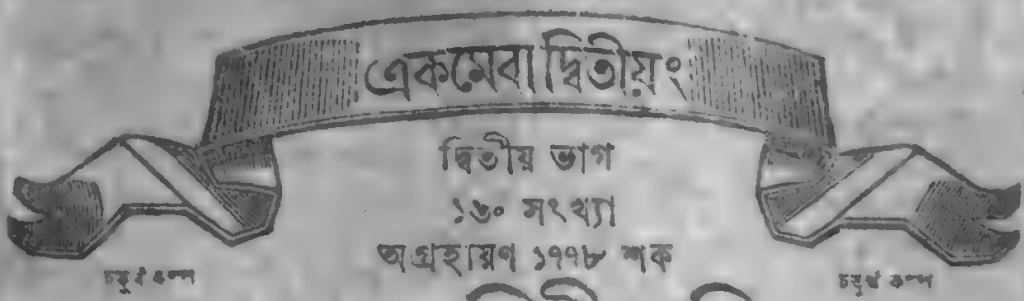 একমেবাদ্বিতীয়ং
দ্বিতীয় ভাগ
১৬০ সংখ্যা
অগ্রহায়ণ ১৭৭৮ শক
চতুর্থ কল্প
চতুর্থ কল্প